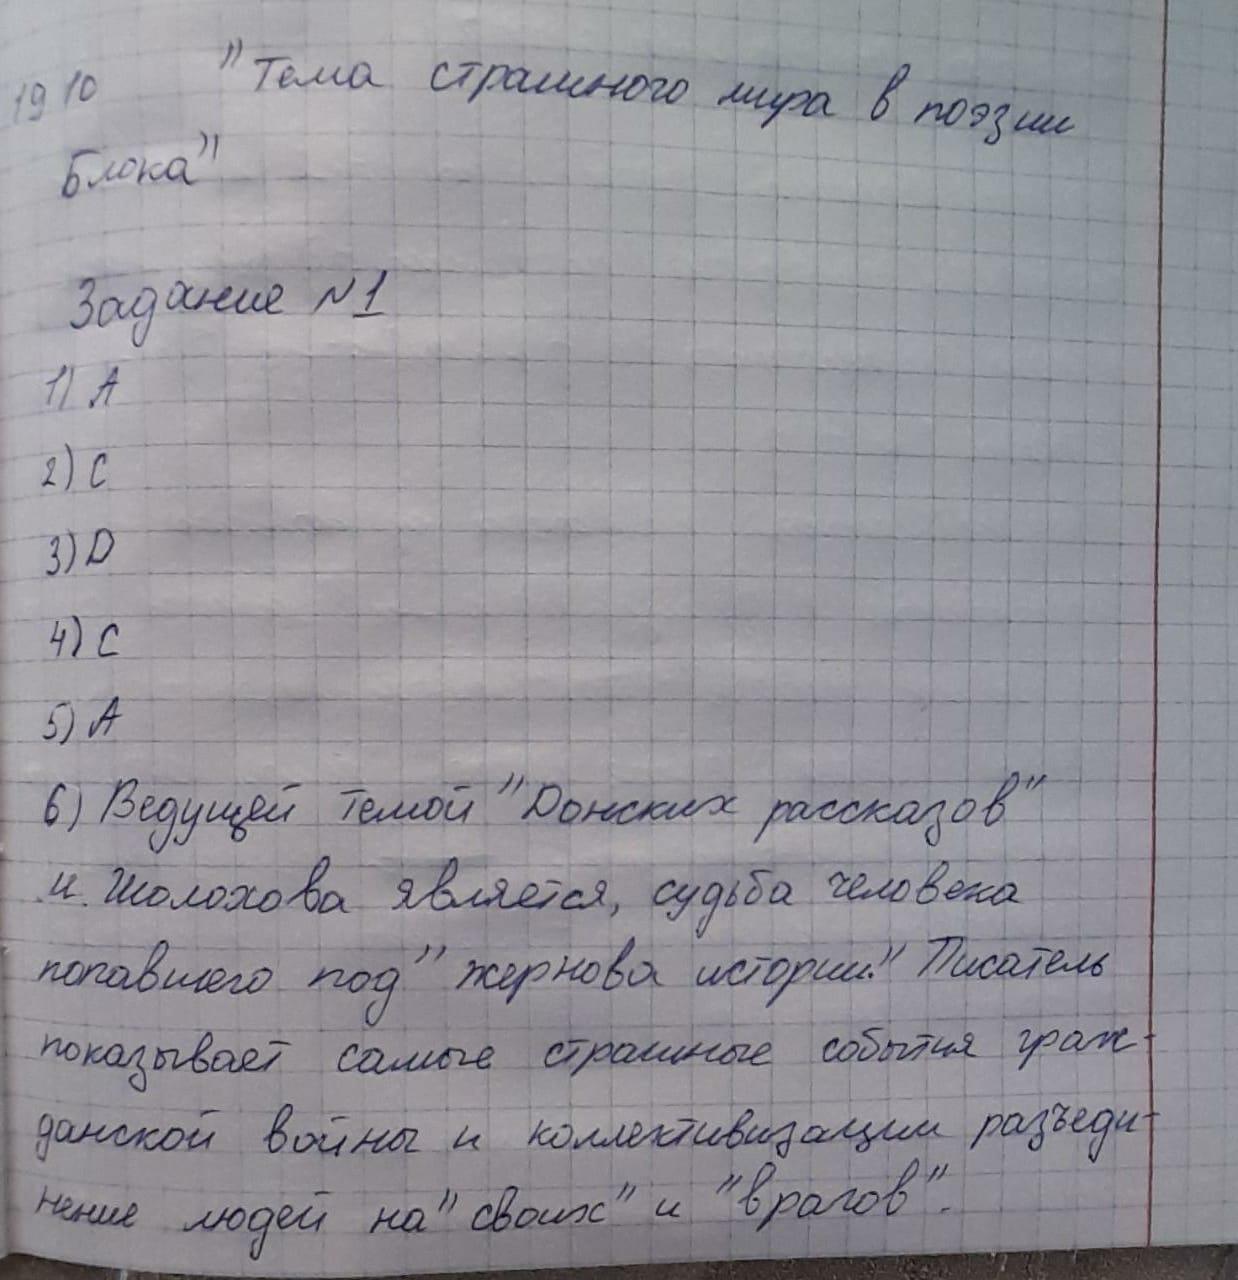 19 10 "Тема страшного мира в поэзии
Блока"
Задание №1
1) А
2) С
3) D
4) С
5) А
6) Ведущей темой "Донских рассказов"
М. Шолохова является, судьба человека
попавшего под "жернова истории." Писатель
показывает самые страшные события граж-
данской войны и коллективизации разъеди-
нение людей на "своих" и "врагов".